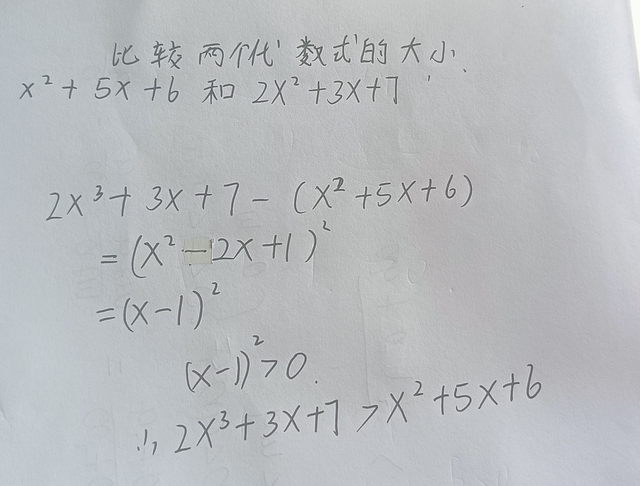 比较两个代数式的大小.
x² + 5x + 6 和 2x² + 3x + 7
2x³ + 3x + 7 - (x² + 5x + 6)
= (x² - 2x + 1)²
= (x - 1)²
(x - 1)² > 0.
∴ 2x³ + 3x + 7 > x² + 5x + 6